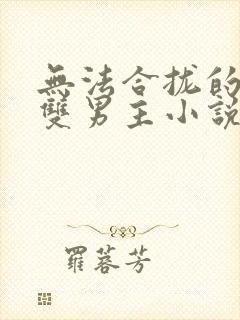 無法合拢的
雙男主小說
羅蓉芳